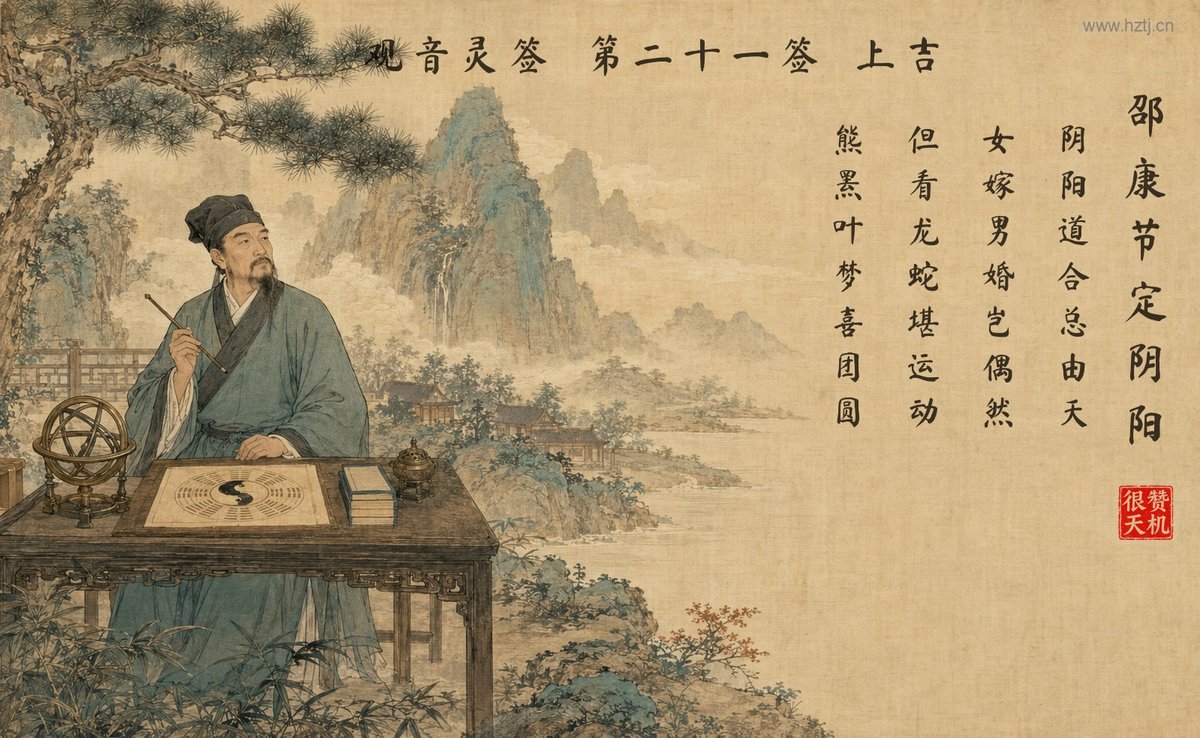 www.hztj.cn
观音灵签 第二十一签 上吉
邵康节定阴阳
阴阳道合总由天
女嫁男婚岂偶然
但看龙蛇堪运动
熊罴叶梦喜团圆
很赞天机